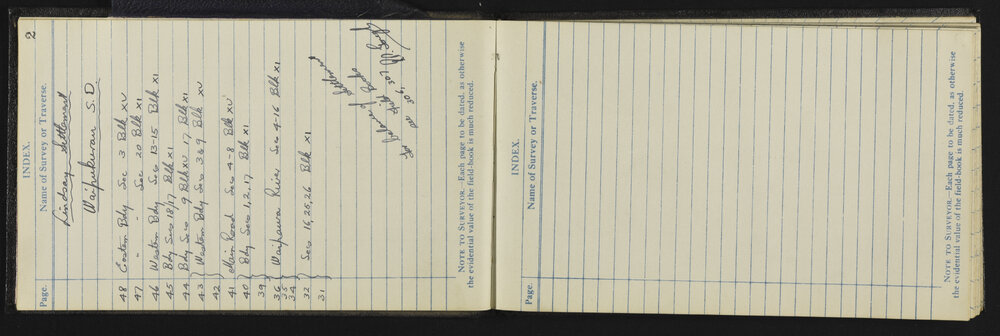 2
INDEX.
Page. Name of Survey or Traverse.
Lindsay Settlement
Waipukurau S.D.
48 Eastern Bdy Sec 3 Blk XV
47 " " Sec 20 Blk XI
46 Western Bdy Secs 13-15 Blk XI
45 Bdy Secs 18/17 Blk XI
44 Bdy Secs 9 Blk XV 17 Blk XI
43 Western Bdy Secs 3 & 9 Blk XV
42
41 Main Road Secs 4-8 Blk XV
40 Bdy Secs 1, 2, 17 Blk XI
39
36 Waipawa River Secs 4-16 Blk XI
35
34
32 Secs 16, 20, 26 Blk XI
31
For balance of Settlement
see Field Books
NOTE TO SURVEYOR.—Each page to be dated, as otherwise
the evidential value of the field-book is much reduced.
INDEX.
Page. Name of Survey or Traverse.
NOTE TO SURVEYOR.—Each page to be dated, as otherwise
the evidential value of the field-book is much reduced.